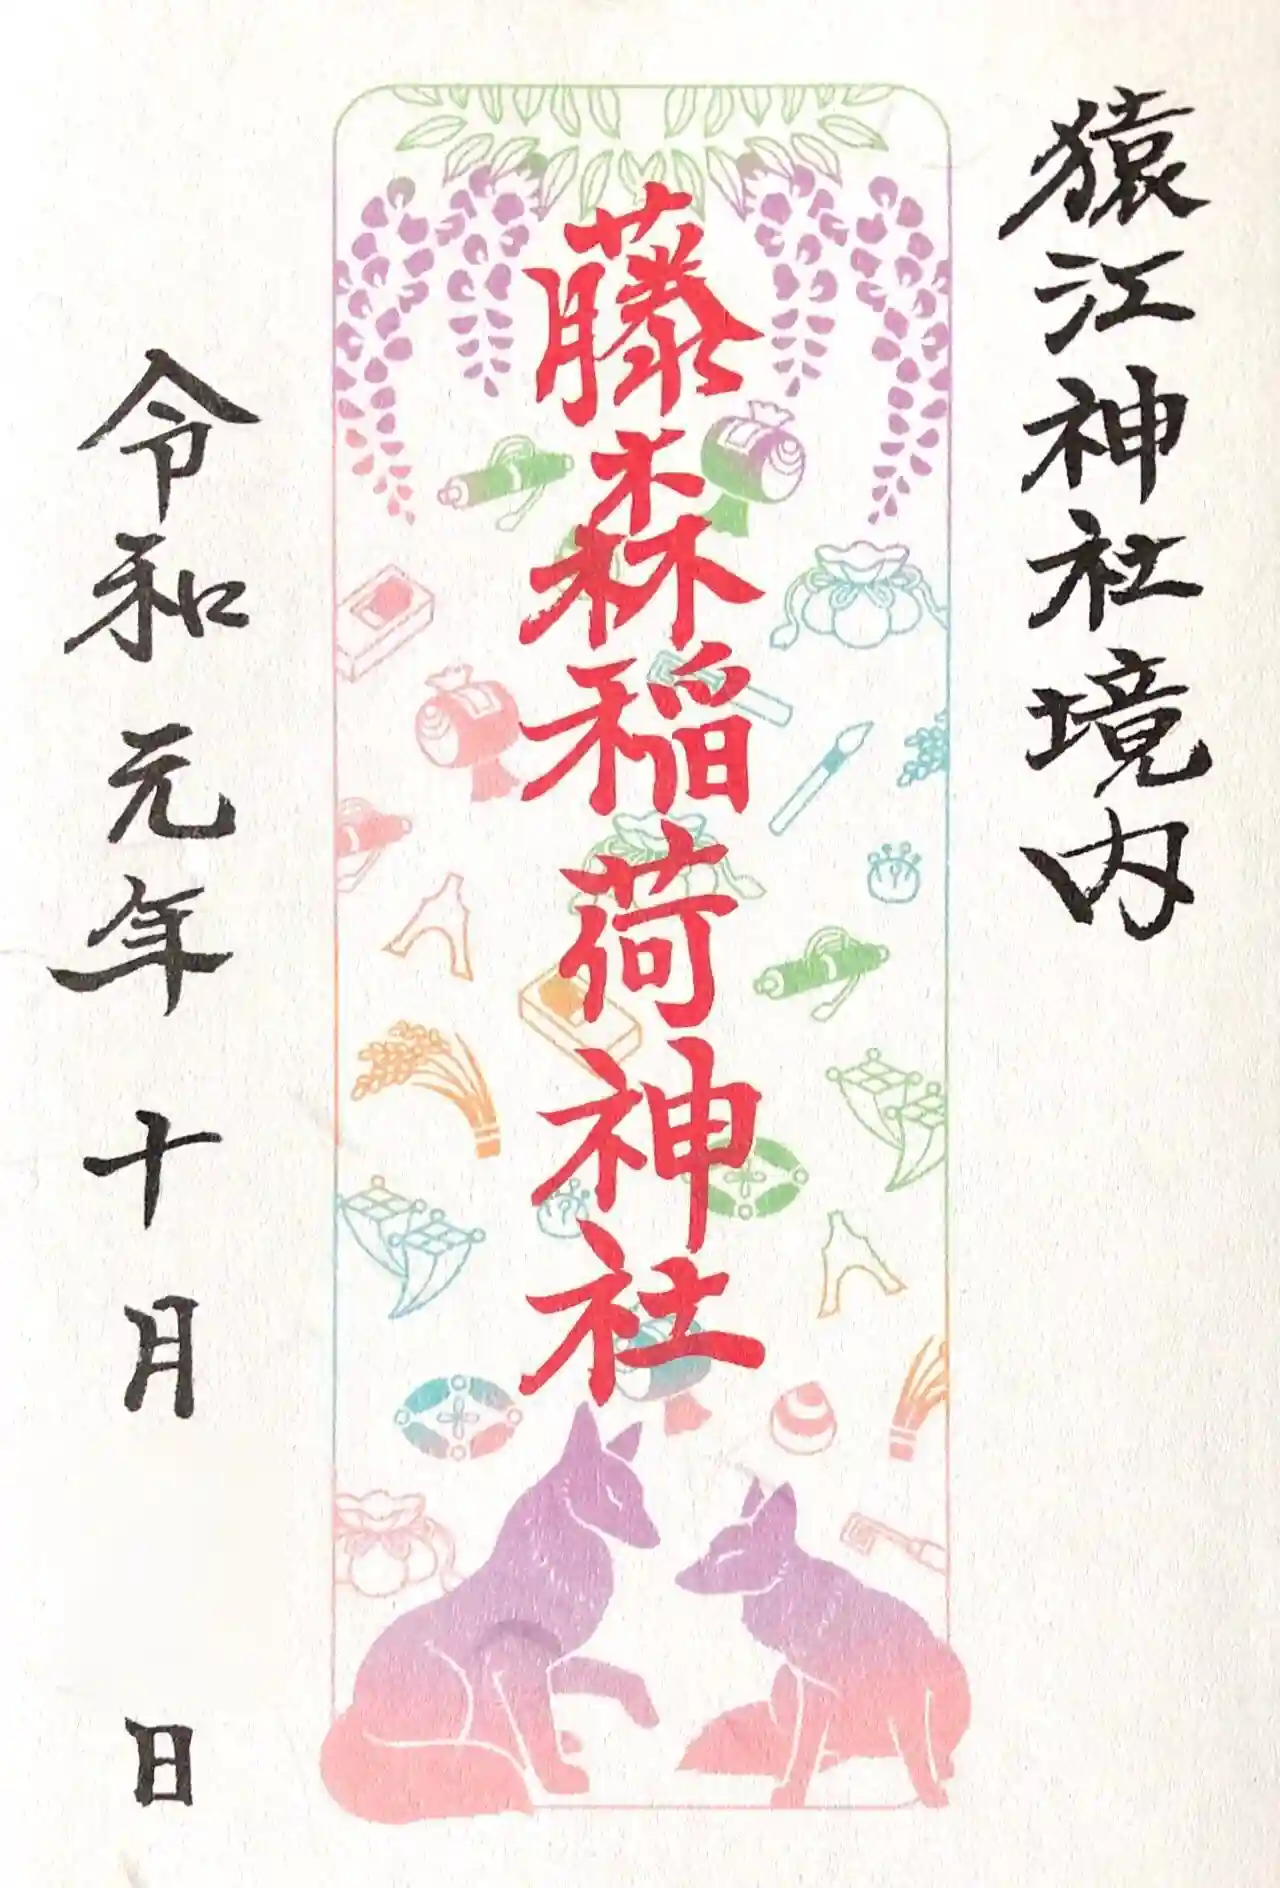 猿江神社境内
藤森稲荷神社
令和元年十月 日